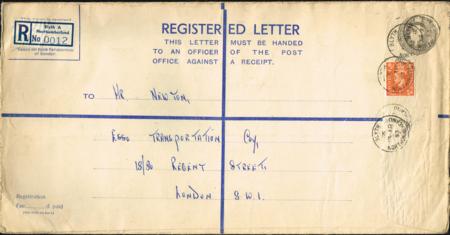 Blyth A
Northumberland
R No 0012
REGISTERED LETTER
THIS LETTER MUST BE HANDED
TO AN OFFICER OF THE POST
OFFICE AGAINST A RECEIPT.
TO Mr. Newton,
Esso Transportation Coy,
Regent Street,
London S.W.1.
Registration
paid